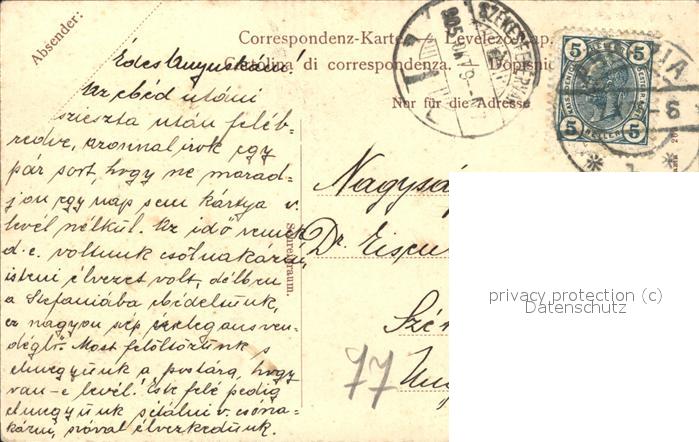 Absender:
Correspondenz-Karte. — Levelező-Lap.
Cartolina di corrispondenza. Dopisnice
Nur für die Adresse
Schreibraum.
Édes Anyuskám!
Az ebéd utáni
szieszta után feléb-
redve, azonnal irok egy
pár sort, hogy ne marad-
jon egy nap sem kártya v.
levél nélkül. Az idő remek
d. e. voltunk csólnakázni,
isteni élvezet volt, délben
a Stefaniába ebédeltünk,
ez nagyon szép és elegáns ven-
déglő. Most felöltözünk s
elmegyünk a postára, hogy
van-e levél! Este felé pedig
elmegyünk sétálni v. csóna-
kázni, szóval élvezkedünk.
Nagysá
Dr.
Szé
77
5 5
5 5
HELLER
SZÉKESFEHÉRVÁR
905
6
privacy protection (c)
Datenschutz